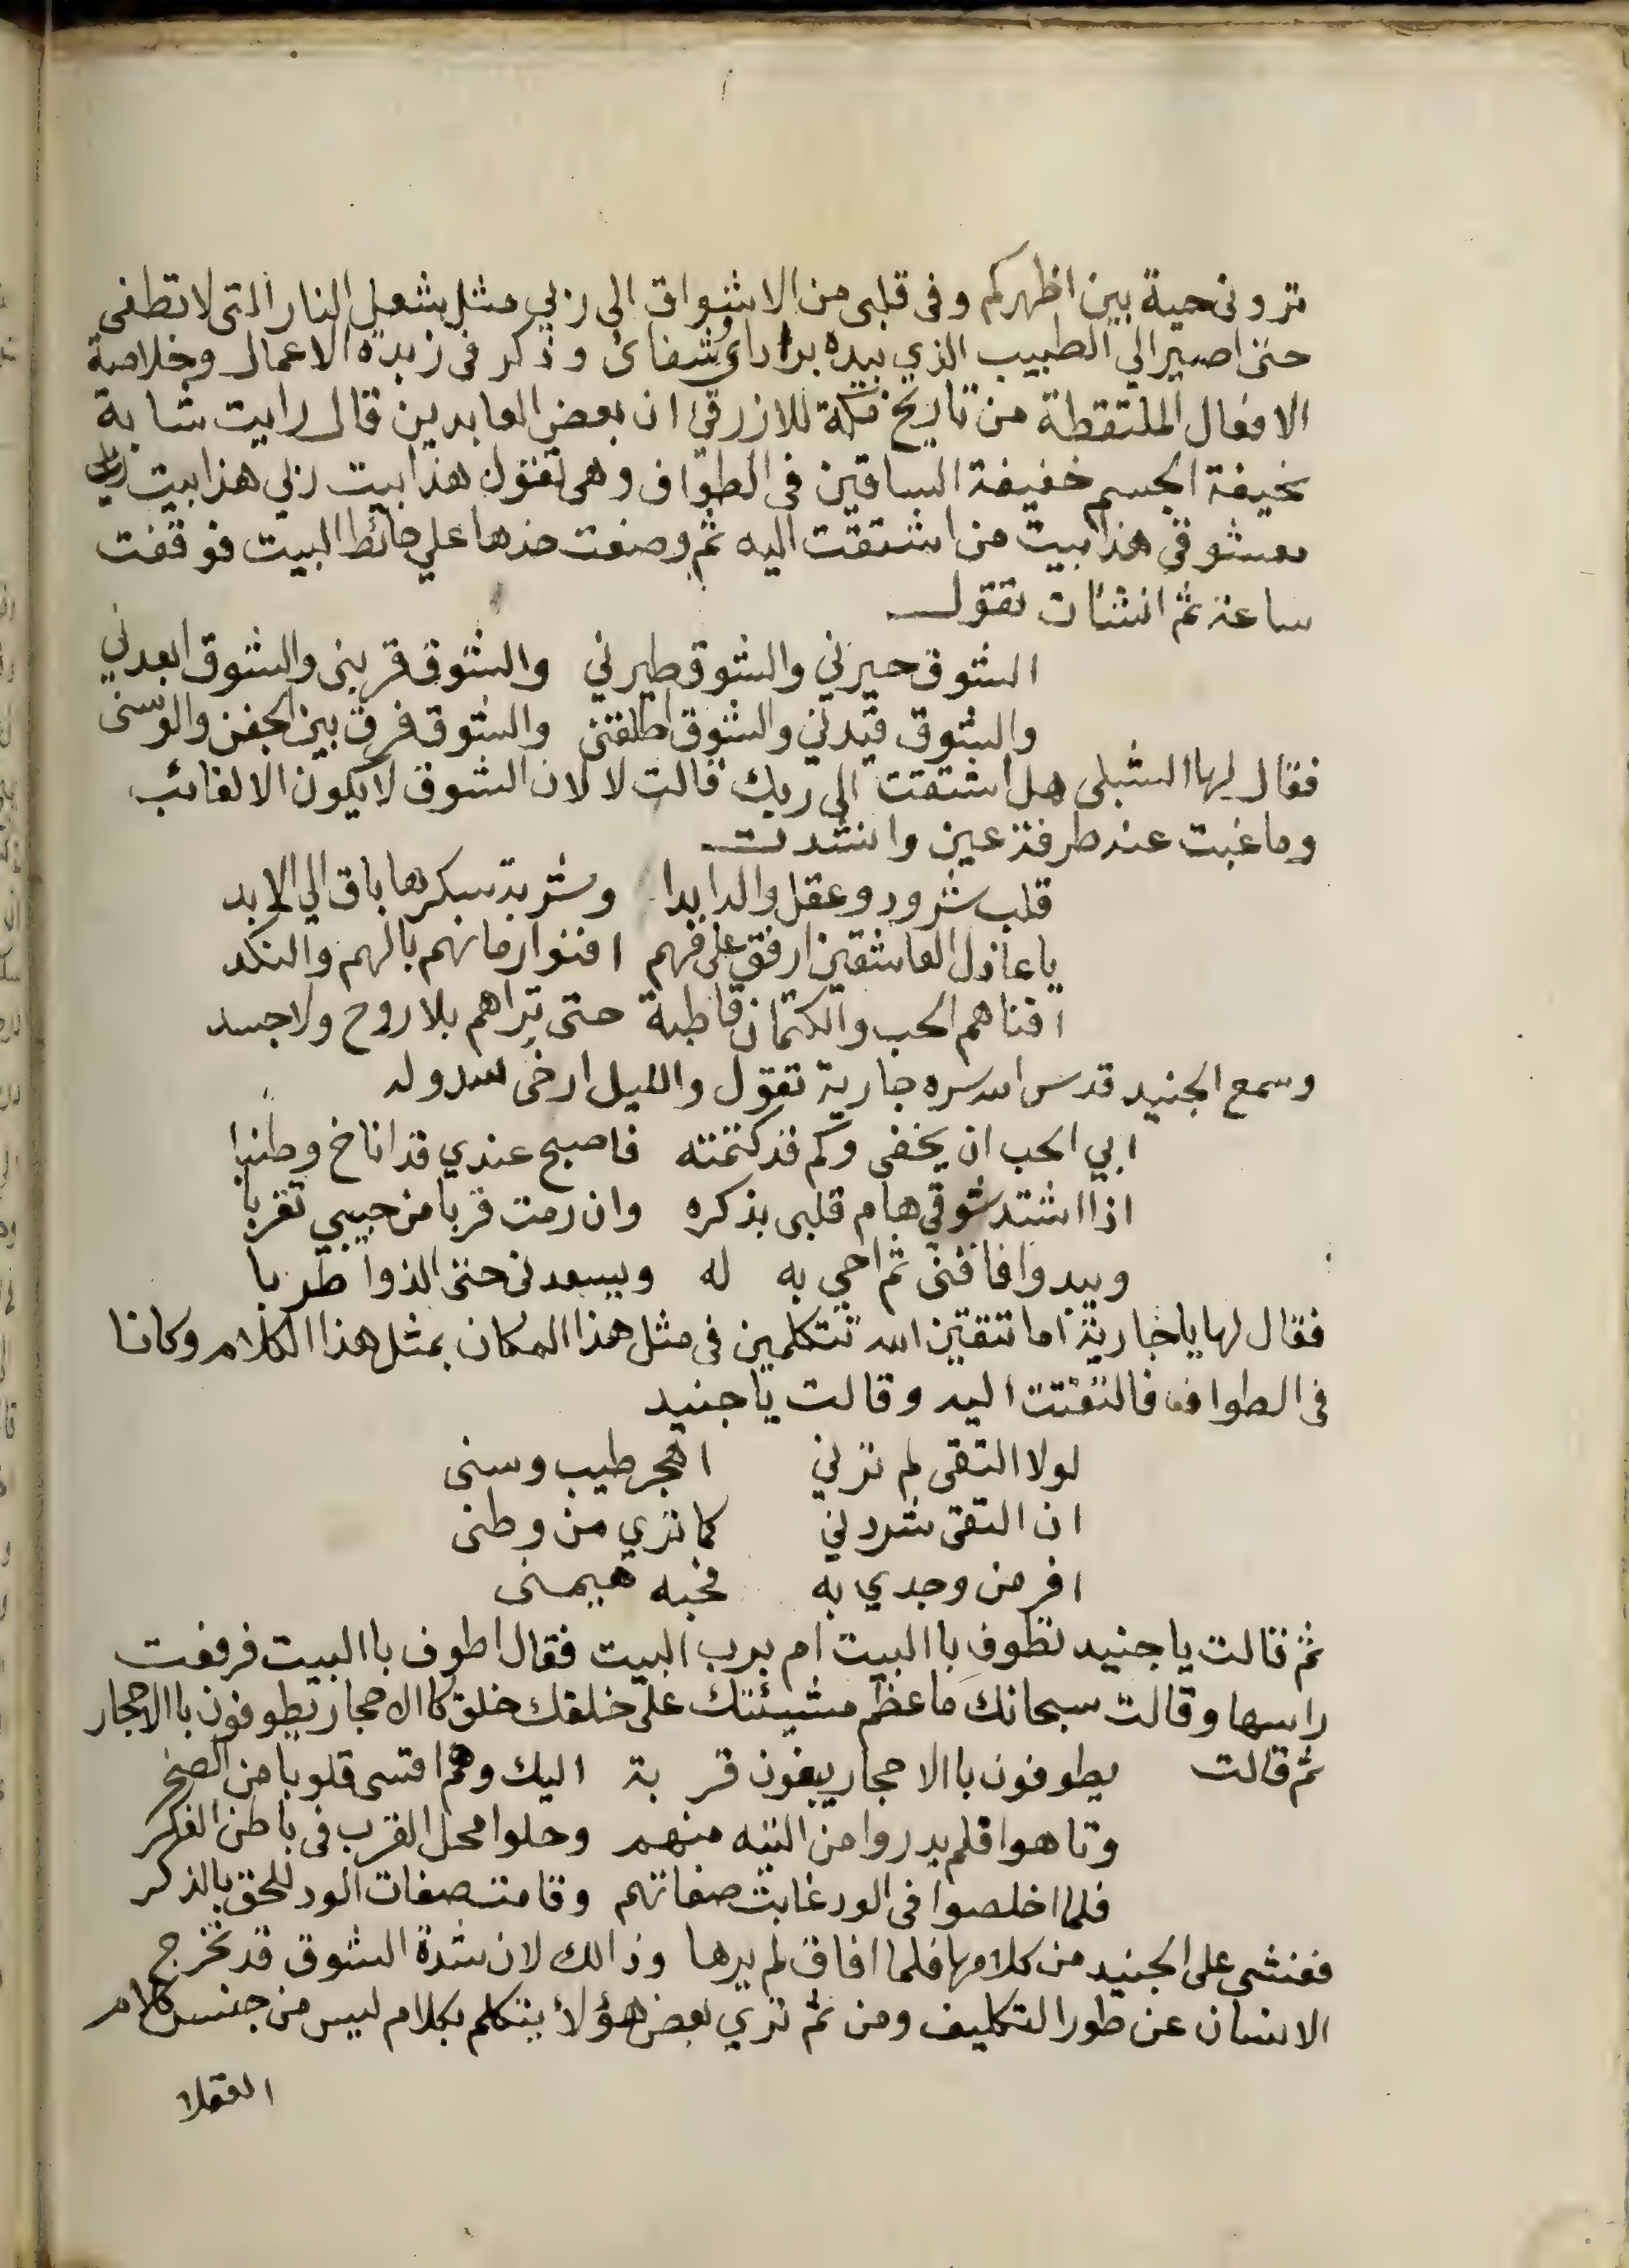 تروني حية بين اظهركم وفي قلبي من الاشواق الى ربي مثل شعل النار التي لا تطفى
حتى اصير الي الطبيب الذي بيده براداي وشفائ وذكر في زبدة الاعمال وخلاصة
الافعال الملتقطة من تاريخ مكة للازرقي ان بعض العابدين قال رايت شابة
نحيفة الجسم خفيفة الساقين في الطواف وهي تقول هذا بيت ربي هذا بيت
معشوقي هذا بيت من اشتقت اليه ثم وضعت خدها علي حائط البيت فوقفت
ساعة ثم انشات تقول
الشوق حيرني والشوق طيرني والشوق قربني والشوق ابعدني
والشوق قيدني والشوق اطلقني والشوق فرق بين الجفن والوسني
فقال لها الشبلي هل اشتقت الى ربك قالت لا لان الشوق لا يكون الا لغائب
وما غبت عنه طرفة عين وانشدت
قلب شرود وعقل والدا بدا وشربة سكرها باق الي الابد
يا عاذل العاشقين ارفق علي فهم افنوا زمانهم بالهم والنكد
افناهم الحب والكتمان قاطبة حتى تراهم بلا روح ولا جسد
وسمع الجنيد قدس الله سره جارية تقول والليل ارخى سدوله
ابي الحب ان يخفى وكم قد كتمته فاصبح عندي قد اناخ وطنبا
اذا اشتد شوقي هام قلبي بذكره وان رمت قربا من حبيبي تقربا
ويبدوا فافنى ثم احي به له ويسعدني حتى الذوا طربا
فقال لها يا جارية اما تتقين الله تتكلمين في مثل هذا المكان بمثل هذا الكلام وكانا
في الطواف فالتفتت اليه وقالت يا جنيد
لولا التقى لم ترني اهجر طيب وسني
ان التقى شردني كما تري من وطني
افر من وجدي به فحبه هيمني
ثم قالت يا جنيد تطوف باالبيت ام برب البيت فقال اطوف باالبيت فرفعت
راسها وقالت سبحانك ما عظم مشيئتك على خلقك خلق كاالاحجار يطوفون باالاحجار
ثم قالت يطوفون باالاحجار يبغون قربة اليك وهم اقسى قلوبا من الصخر
وتاهوا فلم يدروا من التيه منهم وحلوا محل القرب في باطن الفكر
فلما اخلصوا في الود غابت صفاتهم وقامت صفات الود للحق بالذكر
فغشي على الجنيد من كلامها فلما افاق لم يرها وذالك لان شدة الشوق قد تخرج
الانسان عن طور التكليف ومن ثم تري بعض هؤلا يتكلم بكلام ليس من جنس كلام
العقلا